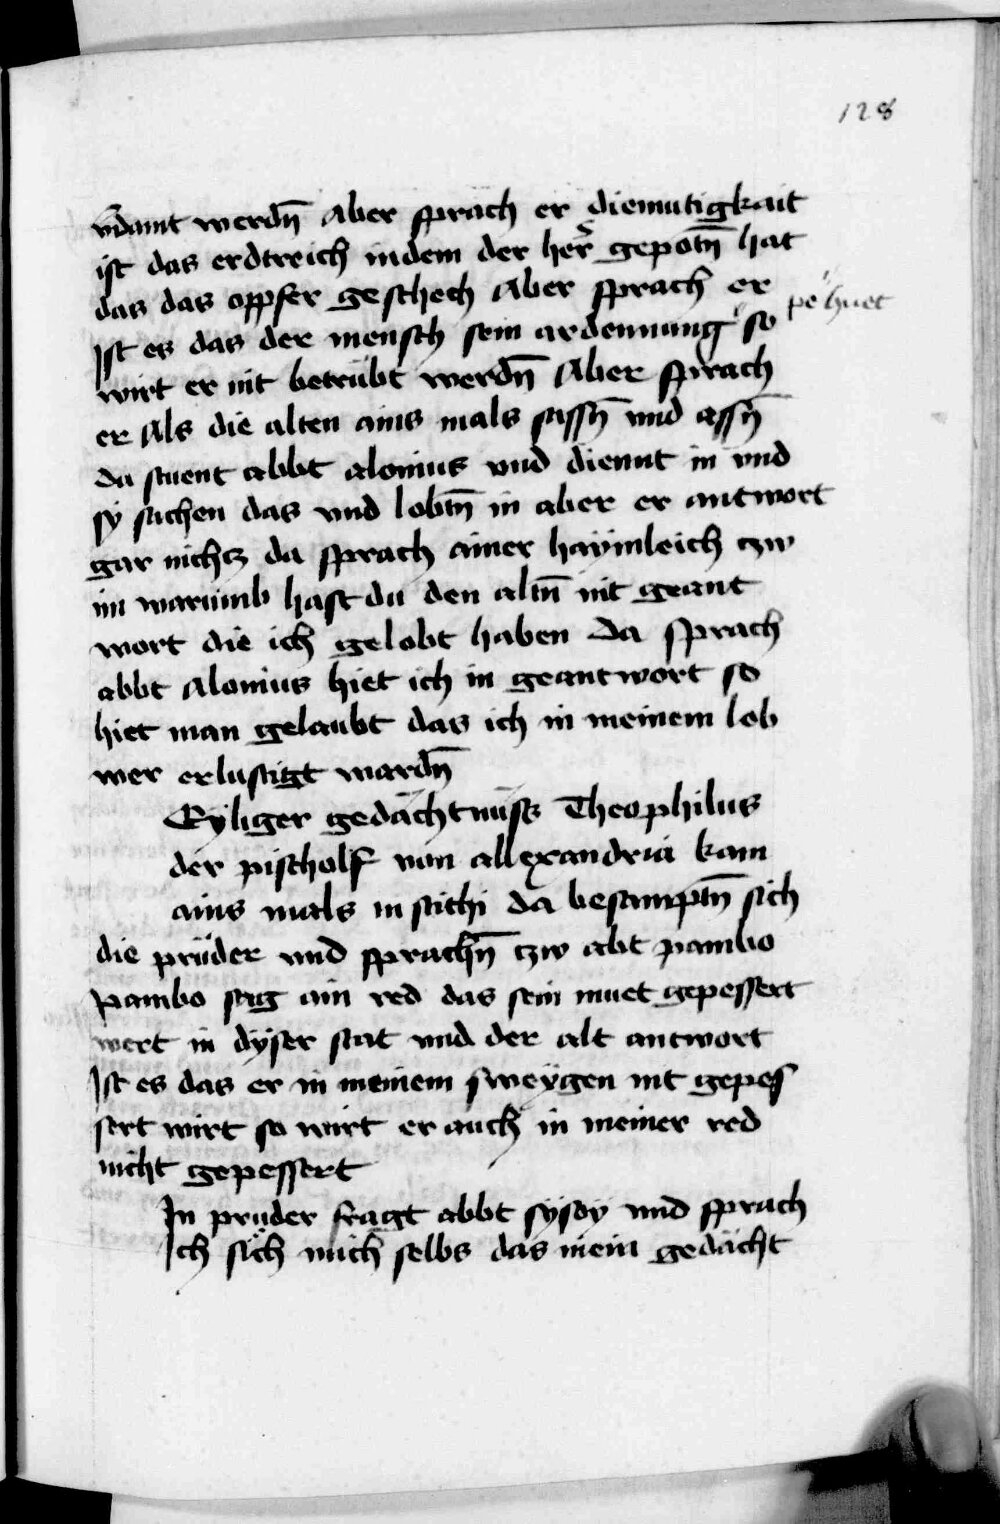 128
vdamt werdn̄ Aber sprach er diemutigkait
ist das erdtreich indem der her gepotn̄ hat
das das oppfer geschech Aber sprach er
Ist es das der mensch sein ardennung so pehuet
wirt er nit betrübt werdn̄ Aber sprach
er Als die alten ains mals sassn̄ vnd assn̄
da stuent abbt alonius vnd diennt in vnd
sÿ sachen das vnd lobtn̄ in aber er antwort
gar nichcz da sprach ainer haÿmleich czw
im warumb hast du den altn̄ nit geant
wort die ich gelobt haben Da sprach
abbt Alonius hiet ich in geantwort so
hiet man gelaubt das ich in meinem lob
wer erlustigt wardn̄
Eÿliger gedächtnüss Theophilus
der pischolf van allexandria kam
ains mals in scithi da besamptn̄ sich
die prüder vnd sprachn̄ czw abt pambo
Pambo sag ain red das sein muet gepessert
wert in dÿser stat vnd der alt antwort
Ist es das er in meinem sweÿgen nit gepes
sert wirt so wirt er auch in meiner red
nicht gepessert
In prüder fragt abbt sÿsoÿ vnd sprach
Ich sich mich selbs das mein gedächt